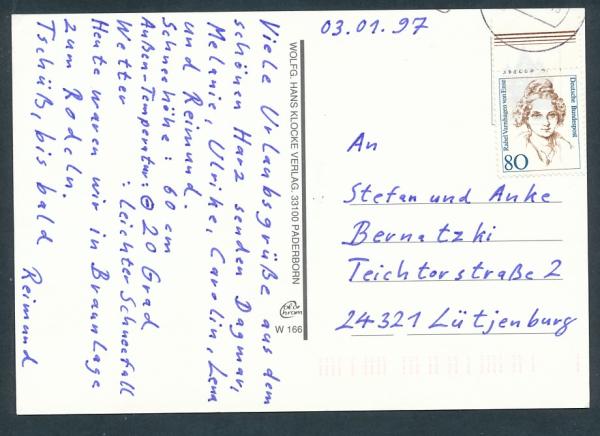 Viele Urlaubsgrüße aus dem
schönen Harz senden Dagmar,
Melanie, Ulrike, Carolin, Lena
und Reimund.
Schneehöhe : 60 cm
Außen-Temperatur: ⊖ 20 Grad
Wetter : Leichter Schneefall
Heute waren wir in Braunlage
zum Rodeln.
Tschüß, bis bald
Reimund
WOLFG. HANS KLOCKE VERLAG. 33100 PADERBORN
W 166
03.01.97
Deutsche Bundespost
Rahel Varnhagen von Ense
80
An
Stefan und Anke
Bernatzki
Teichtorstraße 2
24321 Lütjenburg